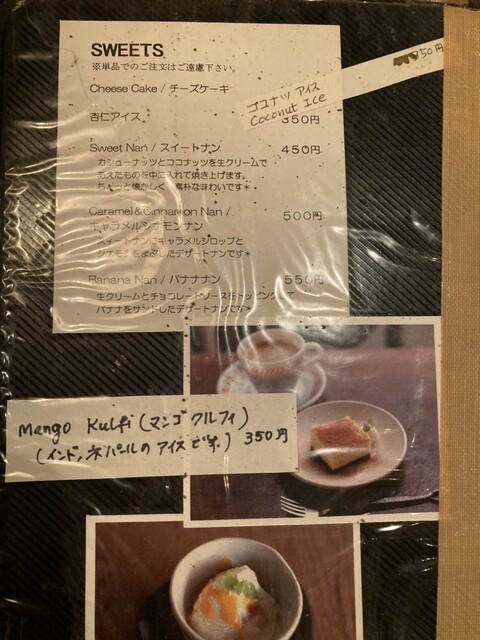 SWEETS
※単品でのご注文はご遠慮下さい。
Cheese Cake / チーズケーキ
350円
ココナッツ アイス
Coconut Ice
杏仁アイス 350円
Sweet Nan / スイートナン 450円
カシューナッツとココナッツを生クリームで
あえたものを中に入れて焼き上げます。
ちょっと懐かしく、素朴な味わいです*
Caramel&Cinnamon Nan / 500円
キャラメルシナモンナン
スイートナンにキャラメルシロップと
シナモンをまぶしたデザートナンです*
Banana Nan / バナナナン 550円
生クリームとチョコレートソースをトッピングして
バナナをサンドしたデザートナンです*
Mango Kulfi (マンゴ クルフィ)
(インド、ネパールの アイス です。) 350円